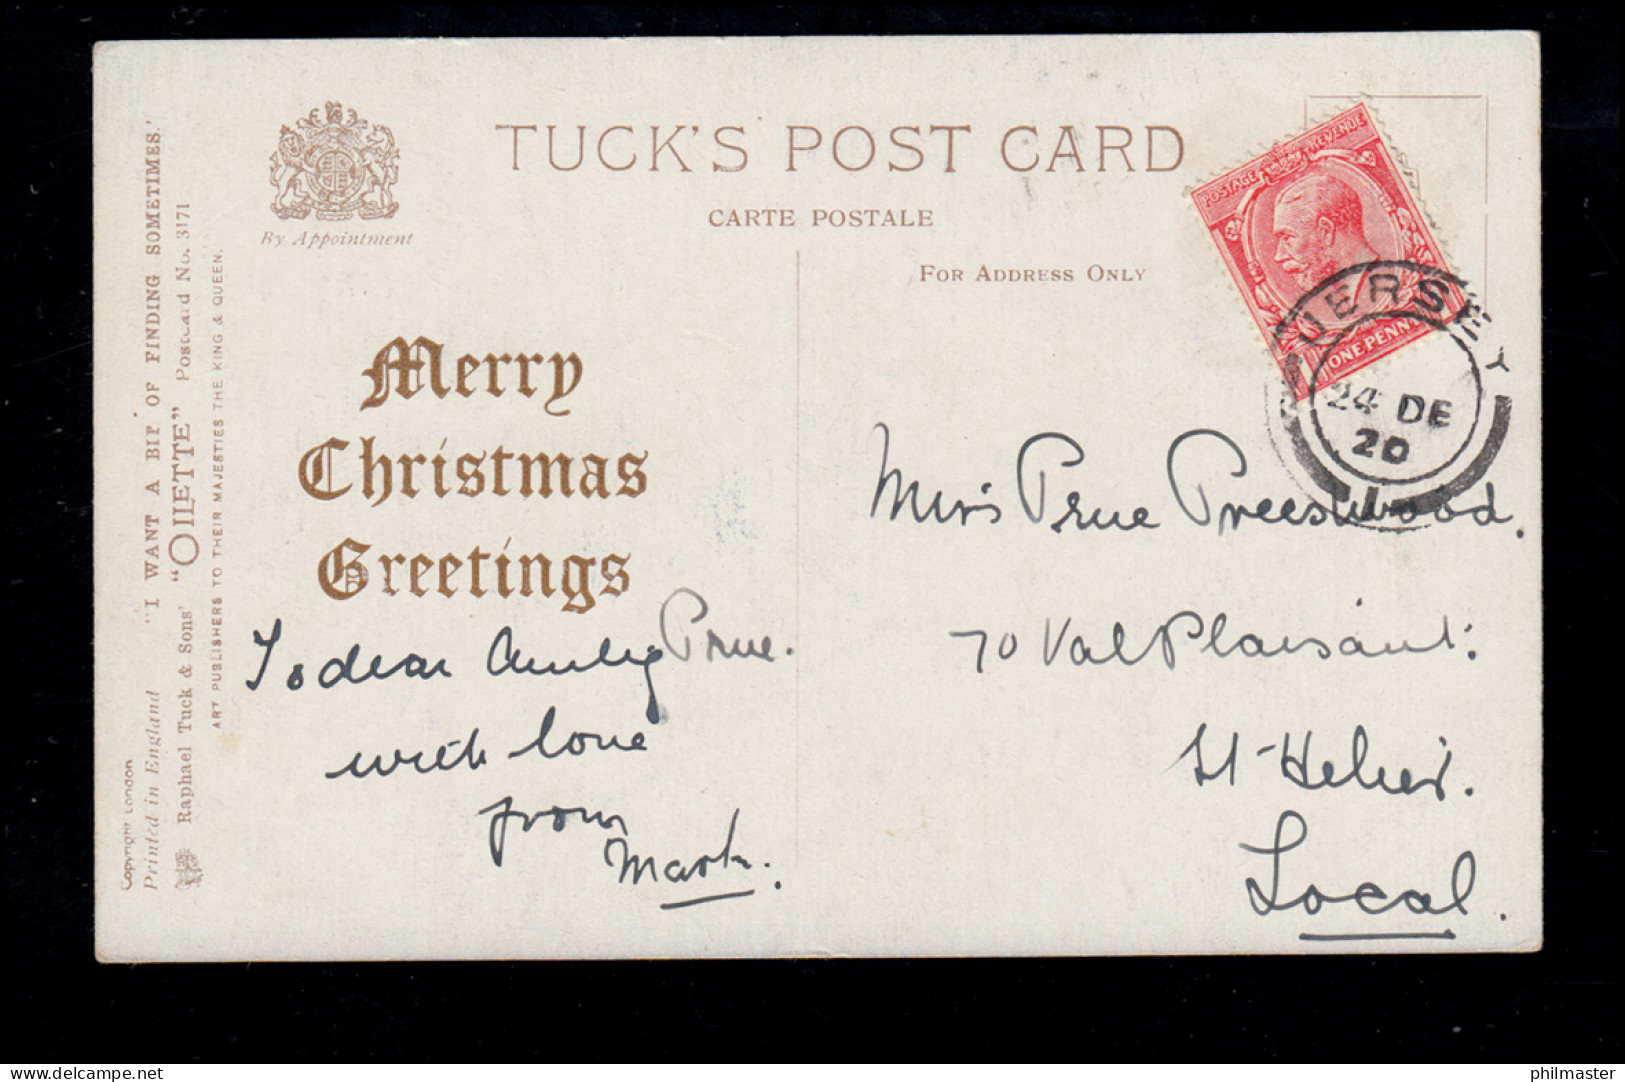 TUCK'S POST CARD
CARTE POSTALE
By Appointment
FOR ADDRESS ONLY
Merry
Christmas
Greetings
To dear Prue.
with love
from
Mark.
POSTAGE REVENUE
ONE PENNY
JERSEY
24 DE
20
1
Prue Preestwood.
70 Val Plaisant:
St Helier.
Local.
"I WANT A BIT OF FINDING SOMETIMES.'
Raphael Tuck & Sons' "OILETTE" Postcard No. 3171
ART PUBLISHERS TO THEIR MAJESTIES THE KING & QUEEN.
Copyright London
Printed in England
Delcampe.net
philmaster